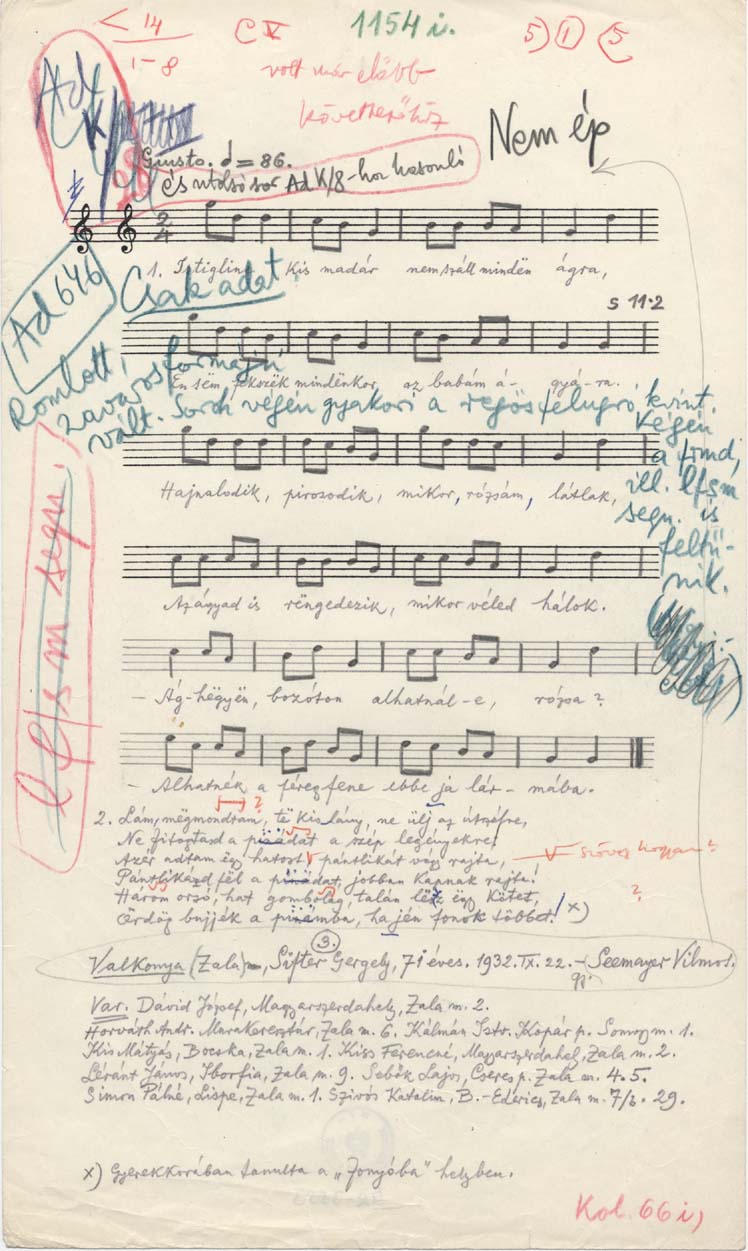 < 14
1-8
C V
1154 i.
5) ① (5
volt már előbb
következőhöz
Ad
K/
28
Nem ép
Giusto. = 86.
és utolsó sor Ad K/8-hoz hasonló
2
4
1. Istiglinc kis madár nem száll mindën ágra,
Ad 646
Csak adat
s 11·2
Én sëm fekszëk mindënkor az babám á- gyá-ra.
Romlott,
zavaros formájú
vált. Sorok végén gyakori a regös felugró kvint.
Végén
a frmd,
ill. lfsm
segn. is
feltű-
nik.
l f s m segn.
Hajnalodik, pirozodik, mikor, rózsám, látlak,
Azágyad is rëngedezik, mikor véled hálok.
- Ág-hëgyën, bozóton alhatnál-e, rózsa?
- Alhatnék a féreg fene ebbe ja lár- mába.
?
2. Lám, mëgmondtam, të kislány, ne ülj az útszélre,
Ne fitogtasd a pi adat a szép legényekre!
Azér adtam ëgy hatost pántlikát végy rajta,
szöveg hogyan?
Pántlikázd fël a pi adat, jobban kapnak rajta!
Három orsó, hat gombolag, talán lësz ëgy kötet,
?
Ördög bujjék a pi amba, ha jén fonok többet! x)
3.
Valkonya (Zala), Sifter Gergely, 71 éves. 1932. IX. 22. - Seemayer Vilmos.
gy.
Var. Dávid József, Magyarszerdahely, Zala m. 2.
Horváth Andr. Murakeresztúr, Zala m. 6. Kálmán Istv. Kopár p. Somogy m. 1.
Kis Mátyás, Bocska, Zala m. 1. Kiss Ferencné, Magyarszerdahely, Zala m. 2.
Léránt János, Iborfia, Zala m. 9. Sebők Lajos, Cseres p. Zala m. 4. 5.
Simon Pálné, Lispe, Zala m. 1. Szivós Katalin, B.-Ederics, Zala m. 7/b. 29.
x) Gyerekkorában tanulta a „Fonyóba" helyben.
Kol. 66 i,